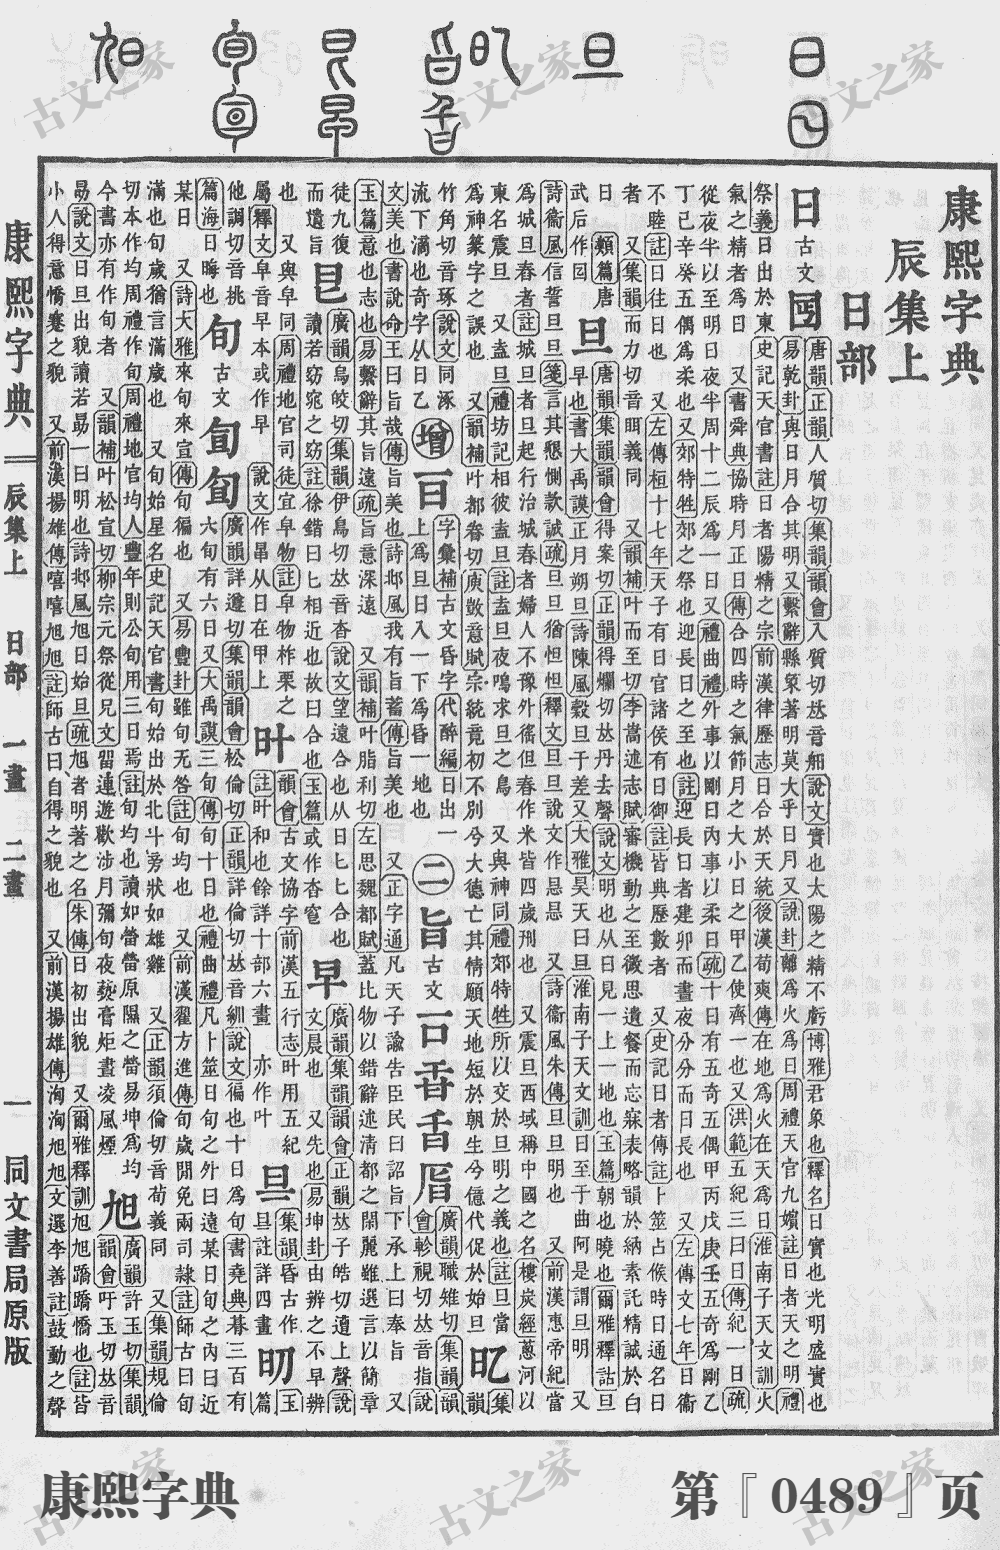 康熙字典
辰集上
日部
日 古文 囸
唐韻正韻人質切集韻韻會入質切𠀤音馹說文實也太陽之精不虧博雅君象也釋名日實也光明盛實也
易乾卦與日月合其明又繫辭縣象著明莫大乎日月又說卦離為火為日周禮天官九嬪註日者天之明禮
祭義日出於東史記天官書註日者陽精之宗前漢律歷志日合於天統後漢荀爽傳在地為火在天為日淮南子天文訓火
氣之精者為日 又書舜典協時月正日傳合四時之氣節月之大小日之甲乙使齊一也又洪範五紀三曰日傳紀一日疏
從夜半以至明日夜半周十二辰為一日又禮曲禮外事以剛日內事以柔日疏十日有五奇五偶甲丙戊庚壬五奇為剛乙
丁己辛癸五偶為柔也又郊特牲郊之祭也迎長日之至也註迎長日者建卯而晝夜分分而日長也 又左傳文七年日衞
不睦註日往日也 又左傳桓十七年天子有日官諸侯有日御註皆典歷數者 又史記日者傳註卜筮占候時日通名日
者 又集韻而力切音眲義同 又韻補叶而至切李嵩述志賦審機動之至微思遺餐而忘寐表略韻於納素託精誠於白
日 類篇唐
武后作囸
旦
唐韻集韻韻會得案切正韻得爛切𠀤丹去聲說文明也从日見一上一地也玉篇朝也曉也爾雅釋詁旦
早也書大禹謨正月朔旦詩陳風穀旦于差又大雅昊天曰旦淮南子天文訓日至于曲阿是謂旦明 又
詩衞風信誓旦旦箋言其懇惻款誠疏旦旦猶怛怛釋文旦旦說文作㫜㫜 又詩衞風朱傳旦旦明也 又前漢惠帝紀當
為城旦舂者註城旦者旦起行治城舂者婦人不豫外徭但舂作米皆四歲刑也 又震旦西域稱中國之名樓炭經蔥河以
東名震旦 又盍旦禮坊記相彼盍旦註盍旦夜鳴求旦之鳥 又與神同禮郊特牲所以交於旦明之義也註旦當
為神篆字之誤也 又韻補叶都眷切庾敳意賦宗統竟初不別兮大德亡其情願天地短於朝生兮億代促於始旦
㫐
集韻
竹角切音琢說文同涿
流下滴也奇字从日乙
增
字彙補古文昏字代醉編日出一
上為旦日入一下為昏一地也
二
旨 古文
廣韻職雉切集韻韻
會軫視切𠀤音指說
文美也書說命王曰旨哉傳旨美也詩邶風我有旨蓄傳旨美也 又正字通凡天子諭告臣民曰詔旨下承上曰奉旨 又
玉篇意也志也易繫辭其旨遠疏旨意深遠 又韻補叶脂利切左思魏都賦蓋比物以錯辭述清都之閑麗雖選言以簡章
徒九復
而遺旨
皀
廣韻烏皎切集韻伊鳥切𠀤音杳說文望遠合也从日匕匕合也
讀若窈窕之窈註徐鍇曰匕相近也故曰合也玉篇或作杳窅
早
廣韻集韻韻會正韻𠀤子皓切遭上聲說
文晨也 又先也易坤卦由辨之不早辨
也 又與皁同周禮地官司徒宜皁物註皁物柞栗之
屬釋文皁音早本或作早 說文作㫗从日在甲上
叶
韻會古文協字前漢五行志叶用五紀
註叶和也餘詳十部六畫 亦作叶
㫔
集韻昏古作
旦註詳四畫
㫏
玉
篇
他謂切音挑
篇海日晦也
旬 古文
廣韻詳遵切集韻韻會松倫切正韻詳倫切𠀤音紃說文徧也十日為旬書堯典朞三百有
六旬有六日又大禹謨三旬傳旬十日也禮曲禮凡卜筮日旬之外曰遠某日旬之內曰近
某日 又詩大雅來旬來宣傳旬徧也 又易豐卦雖旬无咎註旬均也 又前漢翟方進傳旬歲閒免兩司隸註師古曰旬
滿也旬歲猶言滿歲也 又旬始星名史記天官書旬始出於北斗旁狀如雄雞 又正韻須倫切音荀義同 又集韻規倫
切本作均周禮作旬周禮地官均人豐年則公旬用三日焉註旬均也讀如㽦㽦原隰之㽦易坤為均
今書亦有作旬者 又韻補叶松宣切柳宗元祭從兄文習連遊歡涉月彌旬夜藝膏炬晝凌風煙
旭
廣韻許玉切集韻
韻會吁玉切𠀤音
勗說文日旦出貌讀若勗一曰明也詩邶風旭日始旦疏旭者明著之名朱傳日初出貌 又爾雅釋訓旭旭蹻蹻憍也註皆
小人得意憍蹇之貌 又前漢揚雄傳嘻嘻旭旭註師古曰自得之貌也 又前漢揚雄傳洶洶旭旭文選李善註鼓動之聲
康熙字典 辰集上 日部 一畫 二畫 一 同文書局原版
古文之家
康熙字典
第『0489』页